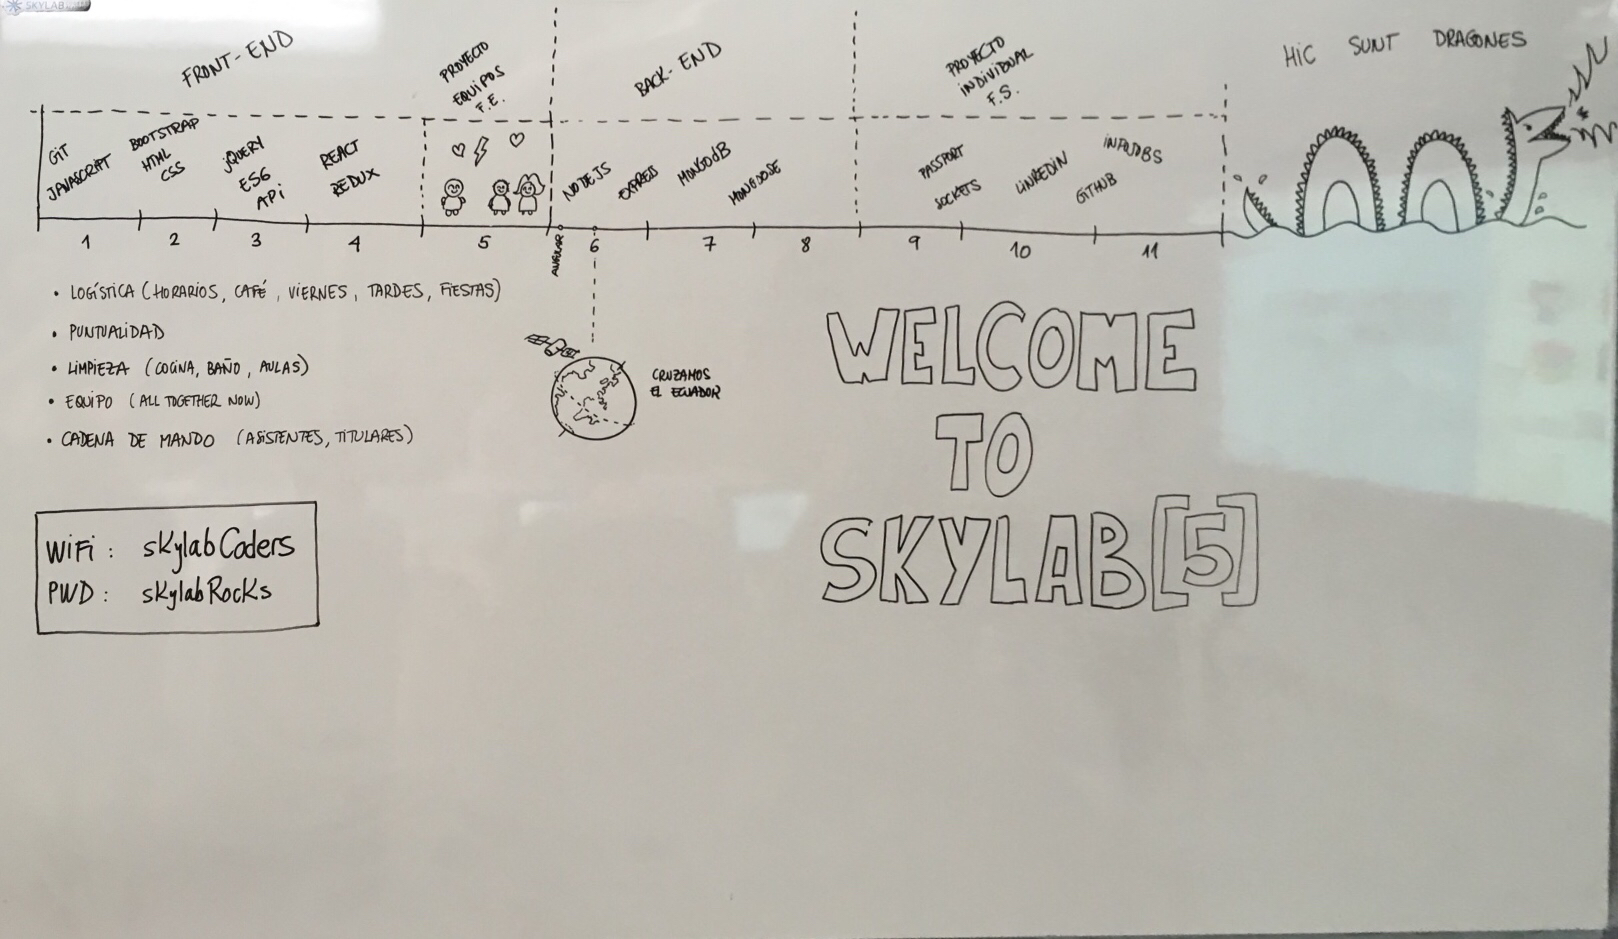 SKYLAB
FRONT-END
PROYECTO
EQUIPOS
F.E.
BACK-END
PROYECTO
INDIVIDUAL
F.S.
HIC SUNT DRAGONES
GIT
JAVASCRIPT
BOOTSTRAP
HTML
CSS
jQUERY
ES6
APi
REACT
REDUX
NODEJS
EXPRESS
MONGODB
MONGOOSE
PASSPORT
SOCKETS
LINKEDIN
GITHUB
INFOJOBS
1
2
3
4
5
ANGULAR
6
7
8
9
10
11
• LOGÍSTICA (HORARIOS, CAFÉ, VIERNES, TARDES, FIESTAS)
• PUNTUALIDAD
• LIMPIEZA (COCINA, BAÑO, AULAS)
• EQUIPO (ALL TOGETHER NOW)
• CADENA DE MANDO (ASISTENTES, TITULARES)
CRUZAMOS
EL ECUADOR
WELCOME
TO
SKYLAB[5]
WiFi: sKylabCoders
PWD: sKylabRocKs